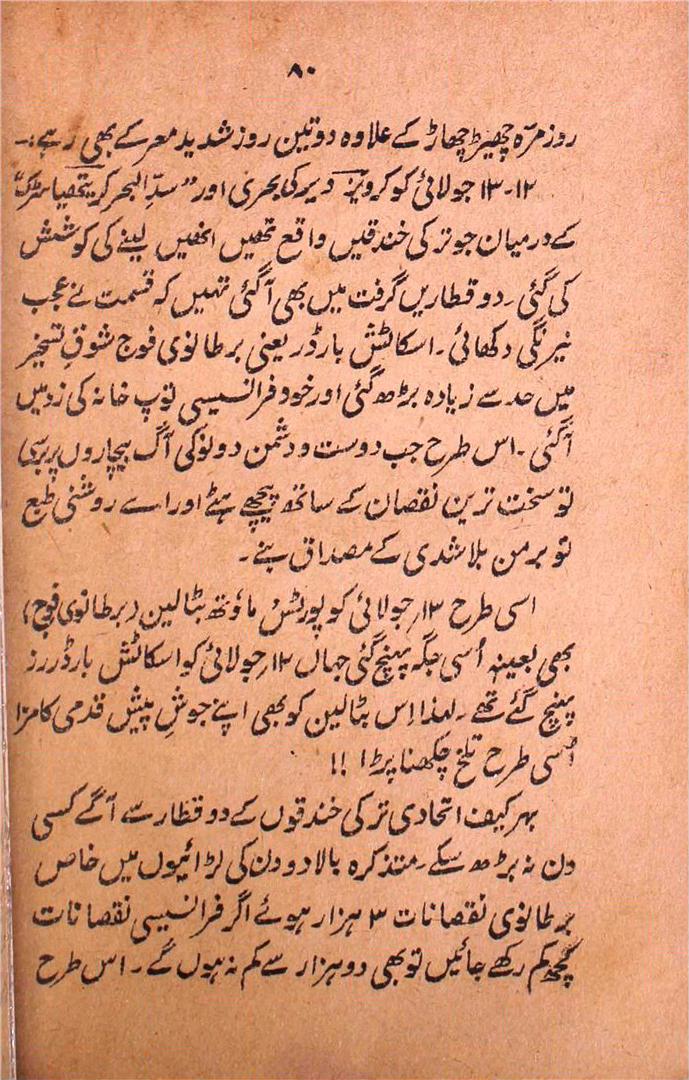 ۸۰
روز مرّہ چھیڑ چھاڑ کے علاوہ دو تین روز شدید معرکے بھی رہے:۔
۱۲-۱۳ جولائی کو کرویز دیر کی بحری اور "سدّ البحر کریتھیا سڑک"
کے درمیان جو ترکی خندقیں واقع تھیں انھیں لینے کی کوشش
کی گئی۔ دو قطاریں گرفت میں بھی آگئی تہیں کہ قسمت نے عجب
نیرنگی دکھائی۔ اسکاٹش بارڈر یعنی برطانوی فوج شوقِ تسخیر
میں حد سے زیادہ بڑھ گئی اور خود فرانسیسی توپ خانہ کی زد میں
آگئی۔ اس طرح جب دوست و دشمن دونو کی آگ بیچاروں پر برسی
تو سخت ترین نقصان کے ساتھ پیچھے ہٹے اور اے روشنیٔ طبع
تو بر من بلا شدی کے مصداق بنے۔
اسی طرح ۱۳؍ جولائی کو پورٹس ماؤتھ بٹالین (برطانوی فوج)
بھی بعینہٖ اُسی جگہ پہنچ گئی جہاں ۱۲؍ جولائی کو اسکاٹش بارڈررز
پہنچ گئے تھے۔ لہذا اِس بٹالین کو بھی اپنے جوشِ پیش قدمی کا مزا
اُسی طرح تلخ چکھنا پڑا !!
بہر کیف اتحادی ترکی خندقوں کے دو قطار سے آگے کسی
دن نہ بڑھ سکے۔ متذکرہ بالا دو دن کی لڑائیوں میں خاص
برطانوی نقصانات ۳ ہزار ہوئے اگر فرانسیسی نقصانات
کچھ کم رکھے جائیں تو بھی دو ہزار سے کم نہ ہوں گے۔ اس طرح